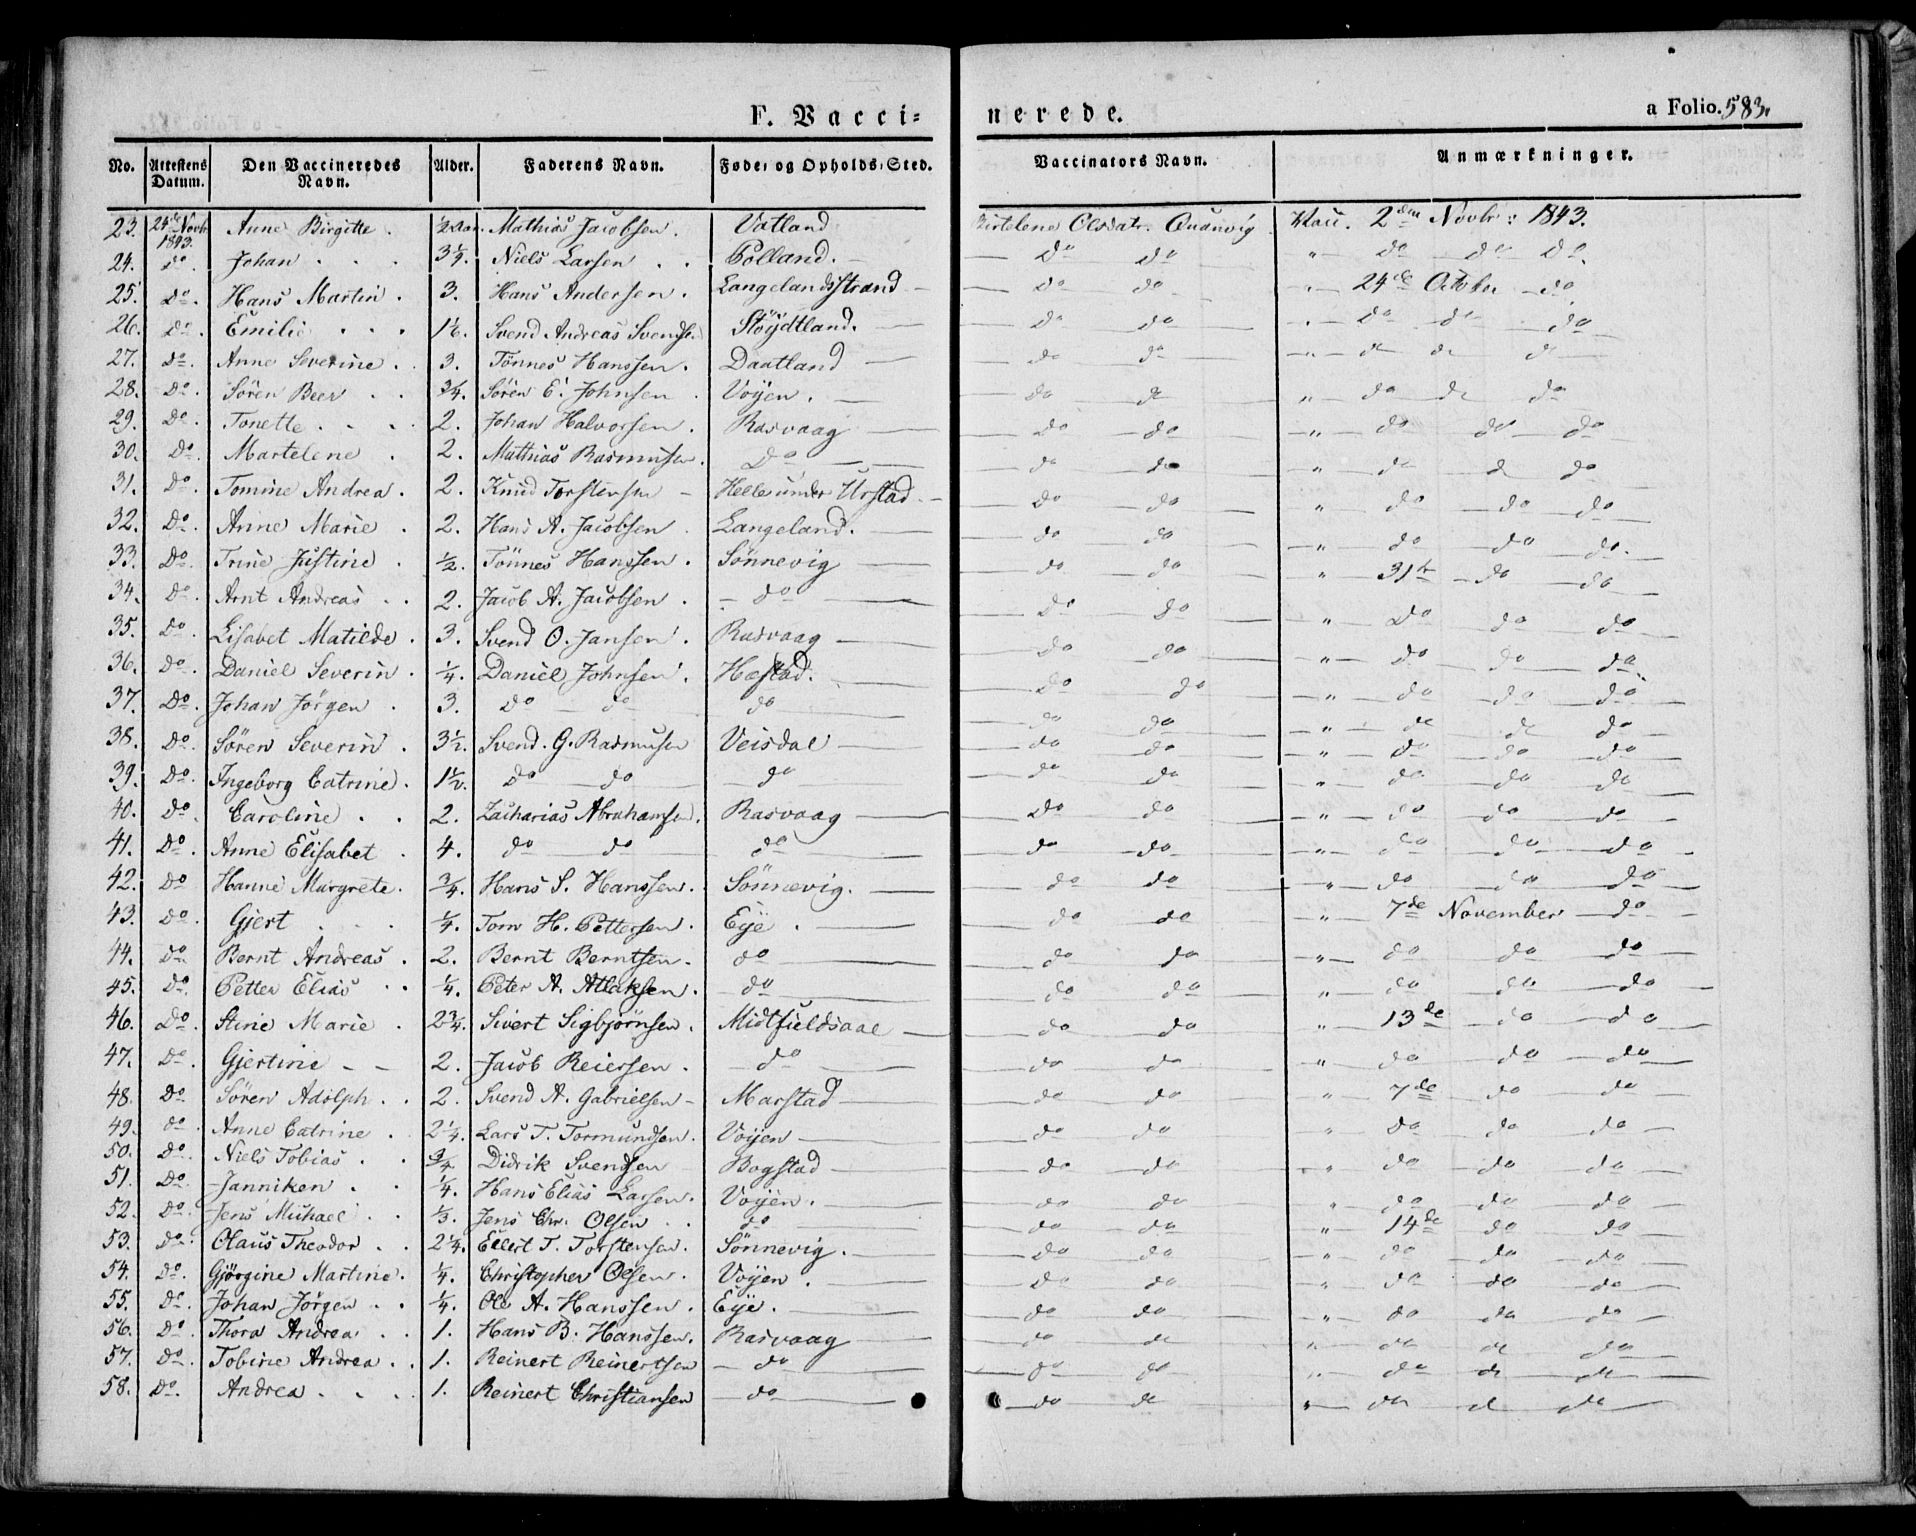 F. Vacci= nerede. a Folio. 583.
No. Attestens Datum. Den Vaccineredes Navn. Alder. Faderens Navn. Føde- og Opholds-Sted. Vaccinators Navn. Anmærkninger.
23. 24de Novbr 1843. Anne Birgitte. ½ Aar. Mathias Jacobsen. Vatland Olsdatr. 2den Novbr: 1843.
24. do. Johan 3¼. Niels Larsen Polland. do do " do do do
25. do. Hans Martin. 3. Hans Andersen. Langelandsstrand do do " 24de October do
26. do. Emilie 1½. Svend Andreas Svendsen Støÿdtland. do do " do do do
27. do. Anne Severine. 3. Tönnes Hanssen. Daatland do do " do do do
28. do. Sören Beer ¾. Sören E. Johnsen Voÿen. do do " do do do
29. do. Tonette 2. Johan Halvorsen. Rasvaag do do " do do do
30. do. Martelene 2. Mathias Rasmusen. do do do " do do do
31. do. Tomine Andrea. 2. Knud Torstensen Helle under Urstad do do " do do do
32. do. Anne Marie 2. Hans A. Jacobsen Langeland. do do " do do do.
33. do. Trine Justine. ½. Tönnes Hanssen. Sönnevig do do " 31te do do
34. do. Arnt Andreas 2. Jacob A. Jacobsen. do do do " do do do
35. do. Lisabet Matilde. 3. Svend O. Jansen. Rasvaag do do " do do do
36. do. Daniel Severin. ¼. Daniel Johnsen. Hæstad. do do " do do do
37. do. Johan Jörgen 3. do do do do do " do do do
38. do. Sören Severin. 3½. Svend. G. Rasmusen Veisdal do do " do do do
39. do. Ingeborg Catrine. 1½. do do do do do " do do do
40. do. Caroline 2. Zacharias Abrahamsen. Rasvaag do do " do do do
41. do. Anne Elisabet 4. do do do do do " do do do
42. do Hanne Margrete. ¾. Hans S. Hanssen. Sönnevig. do do " do do do
43. do. Gjert ¼. Tom H. Pettersen. Eÿe. do do " 7de November do
44. do. Bernt Andreas. 2. Bernt Berntsen. do do do " do do do
45. do. Petter Elias ¼. Peter A. Atlaksen. do do do " do do do
46. do. Stine Marie 2¾. Sivert Sigbjörnsen. Midtfieldsaae do do " 13de do do
47. do. Gjertine 2. Jacob Reiersen. do do do " do do do
48. do Sören Adolph. 2. Svend A. Gabrielsen Marstad do do " 7de do do
49. do. Anne Catrine 2¼. Lars T. Tormundsen. Voÿen do do " do do do
50. do. Niels Tobias ¾. Didrik Svendsen Bogstad do do " do do do
51. do. Janniken ¼. Hans Elias Larsen. Voÿen. do do " do do do
52. do. Jens Michael ⅓. Jens Chr. Olsen do do do " 14de do do
53. do. Olaus Theodor 2¼. Eilert T. Torstensen. Sönnevig. do do " do do do
54. do. Gjörgine Martine. ¼. Christopher Olsen. Voÿen. do do " do do do
55. do. Johan Jörgen ¼. Ole A. Hanssen. Eÿe. do do " do do do
56. do. Thora Andrea 1. Hans B. Hanssen. Rasvaag do do " do do do
57. do. Tobine Andrea 1. Reinert Reinertsen do do do " do do do
58. do. Andrea 1. Reinert Christiansen do do do " do do do